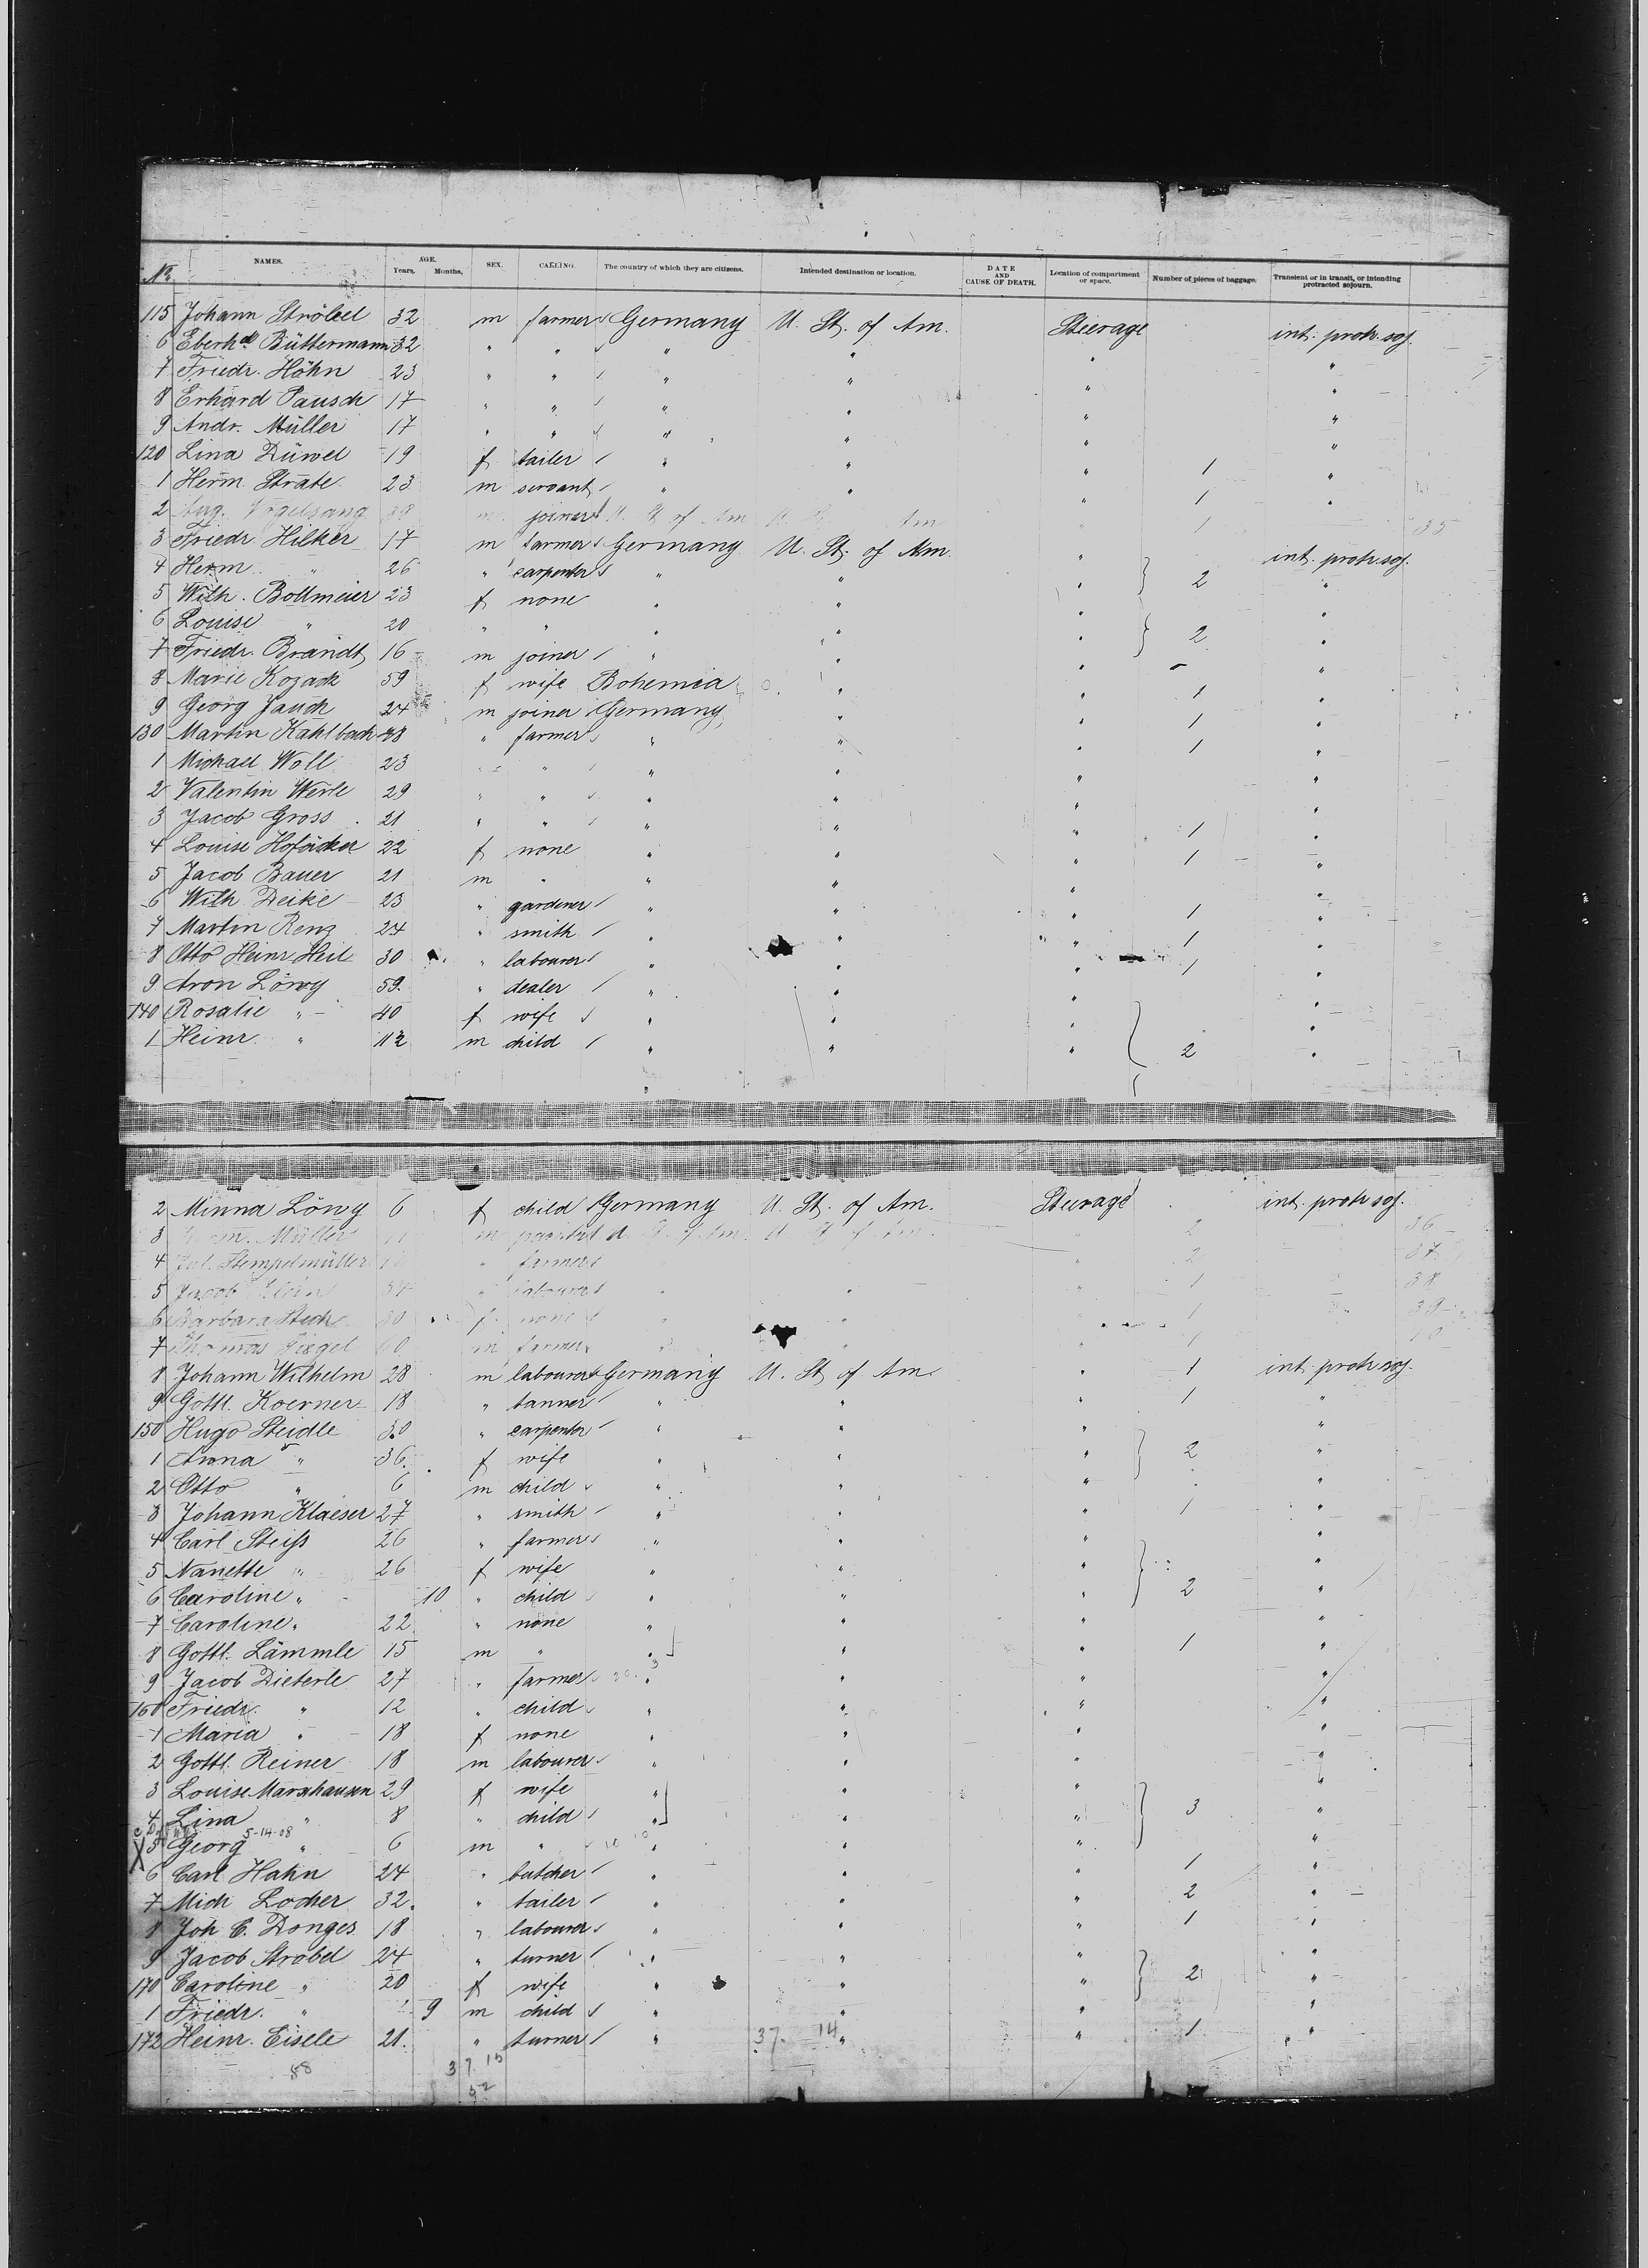 No. NAMES. AGE. Years. Months. SEX. CALLING. The country of which they are citizens. Intended destination or location. DATE AND CAUSE OF DEATH. Location of compartment or space. Number of pieces of baggage. Transient or in transit, or intending protracted sojourn.
115 Johann Ströbel 32 m farmer Germany U. St. of Am. Steerage int. protr. soj.
6 Eberhd. Büttermann 32 " " " " " "
7 Friedr. Höhn 23 " " " " " "
8 Erhard Pausch 17 " " " " " "
9 Andr. Müller 17 " " " " " "
120 Lina Düwel 19 f tailer " " " 1 "
1 Herm. Strate 23 m servant " " " 1 "
2 Aug. Vogelsang 38 m joiner U. St. of Am U. St. Am " 1 35
3 Friedr. Hilker 17 m farmer Germany U. St. of Am. " int. protr. soj.
4 Herm. " 26 " carpenter " " " 2 "
5 Wilh. Bollmeier 23 f none " " "
6 Louise " 20 " " " " " 2 "
7 Friedr. Brandt 16 m joiner " " " - "
8 Marie Kozack 59 f wife Bohemia " " 1 "
9 Georg Jauch 24 m joiner Germany " " 1 "
130 Martin Kahlbach 28 " farmer " " " 1 "
1 Michael Woll 23 " " " " " "
2 Valentin Werle 29 " " " " " "
3 Jacob Gross 21 " " " " " 1 "
4 Louise Hofäcker 22 f none " " " 1 "
5 Jacob Bauer 21 m " " " " "
6 Wilh Deike 23 " gardener " " " 1 "
7 Martin Renz 24 " smith " " " 1 "
8 Otto Heinr. Heil 30 " labourer " " " 1 "
9 Aron Löwy 59. " dealer " " " "
140 Rosalie " 40 f wife " " " "
1 Heinr. " 11 m child " " " 2 "
2 Minna Löwy 6 f child Germany U. St. of Am. Steerage int. protr. soj.
3 Müller m U. St. of Am. " 2 36
4 Jul. Stempelmüller " farmer " 2 37
5 Jacob Klein 34 " labourer " " " 1 38
6 Barbara Stich 30 f none " " " 1 39
7 Thomas Fiegel 60 m farmer " " " 1
8 Johann Wilhelm 28 m labourer Germany U. St. of Am. " 1 int. protr. soj.
9 Gottl. Koerner 18 " tanner " " " 1 "
150 Hugo Steidle 30 " carpenter " " " "
1 Anna " 36. f wife " " " 2 "
2 Otto " 6 m child " " " "
3 Johann Klaeser 27 " smith " " " 1 "
4 Carl Steiss 26 " farmer " " " "
5 Nanette " 26 f wife " " " "
6 Caroline " 10 " child " " " 2 "
7 Caroline " 22 " none " " " "
8 Gottl. Lämmle 15 m " " " " 1 "
9 Jacob Dieterle 27 " farmer " " " "
160 Friedr. " 12 " child " " " "
1 Maria " 18 f none " " " "
2 Gottl. Reiner 18 m labourer " " " "
3 Louise Marxhausen 29 f wife " " " "
4 Lina " 8 " child " " " 3 "
5-14-08
5 Georg " 6 m " " " " "
6 Carl Hahn 24 " butcher " " " 1 "
7 Mich Locher 32. " tailer " " " 2 "
8 Joh C. Donges 18 " labourer " " " 1 "
9 Jacob Ströbel 24 " turner " " " "
170 Caroline " 20 f wife " " " 2 "
1 Friedr. " 9 m child " " " "
172 Heinr. Eisele 21. " turner " 37. 14 " " 1 "
58 37 15
52